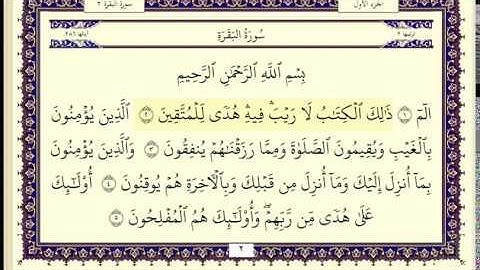 سورة البقرة ٢
الجزء الأول
آياتها ٢٨٦
سُورَةُ البَقَرَةِ
ترتيبها ٢
بِسْمِ اللَّهِ الرَّحْمَٰنِ الرَّحِيمِ
الٓمٓ ١ ذَٰلِكَ الْكِتَابُ لَا رَيْبَ ۛ فِيهِ ۛ هُدًى لِّلْمُتَّقِينَ ٢ الَّذِينَ يُؤْمِنُونَ
بِالْغَيْبِ وَيُقِيمُونَ الصَّلَوٰةَ وَمِمَّا رَزَقْنَٰهُمْ يُنفِقُونَ ٣ وَالَّذِينَ يُؤْمِنُونَ
بِمَآ أُنزِلَ إِلَيْكَ وَمَآ أُنزِلَ مِن قَبْلِكَ وَبِالْآخِرَةِ هُمْ يُوقِنُونَ ٤ أُو۟لَٰٓئِكَ
عَلَىٰ هُدًى مِّن رَّبِّهِمْ ۖ وَأُو۟لَٰٓئِكَ هُمُ الْمُفْلِحُونَ ٥
٢